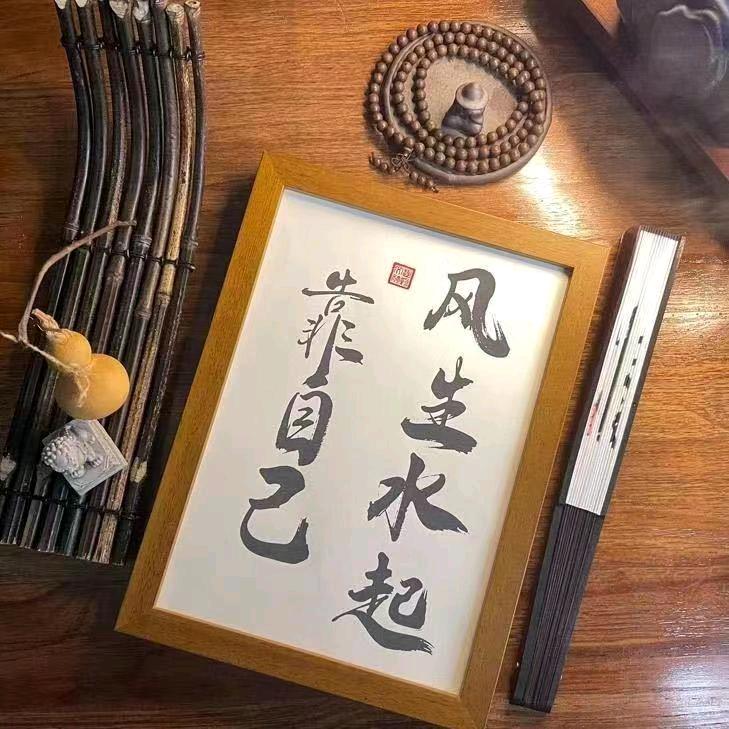 风生水起
靠自己